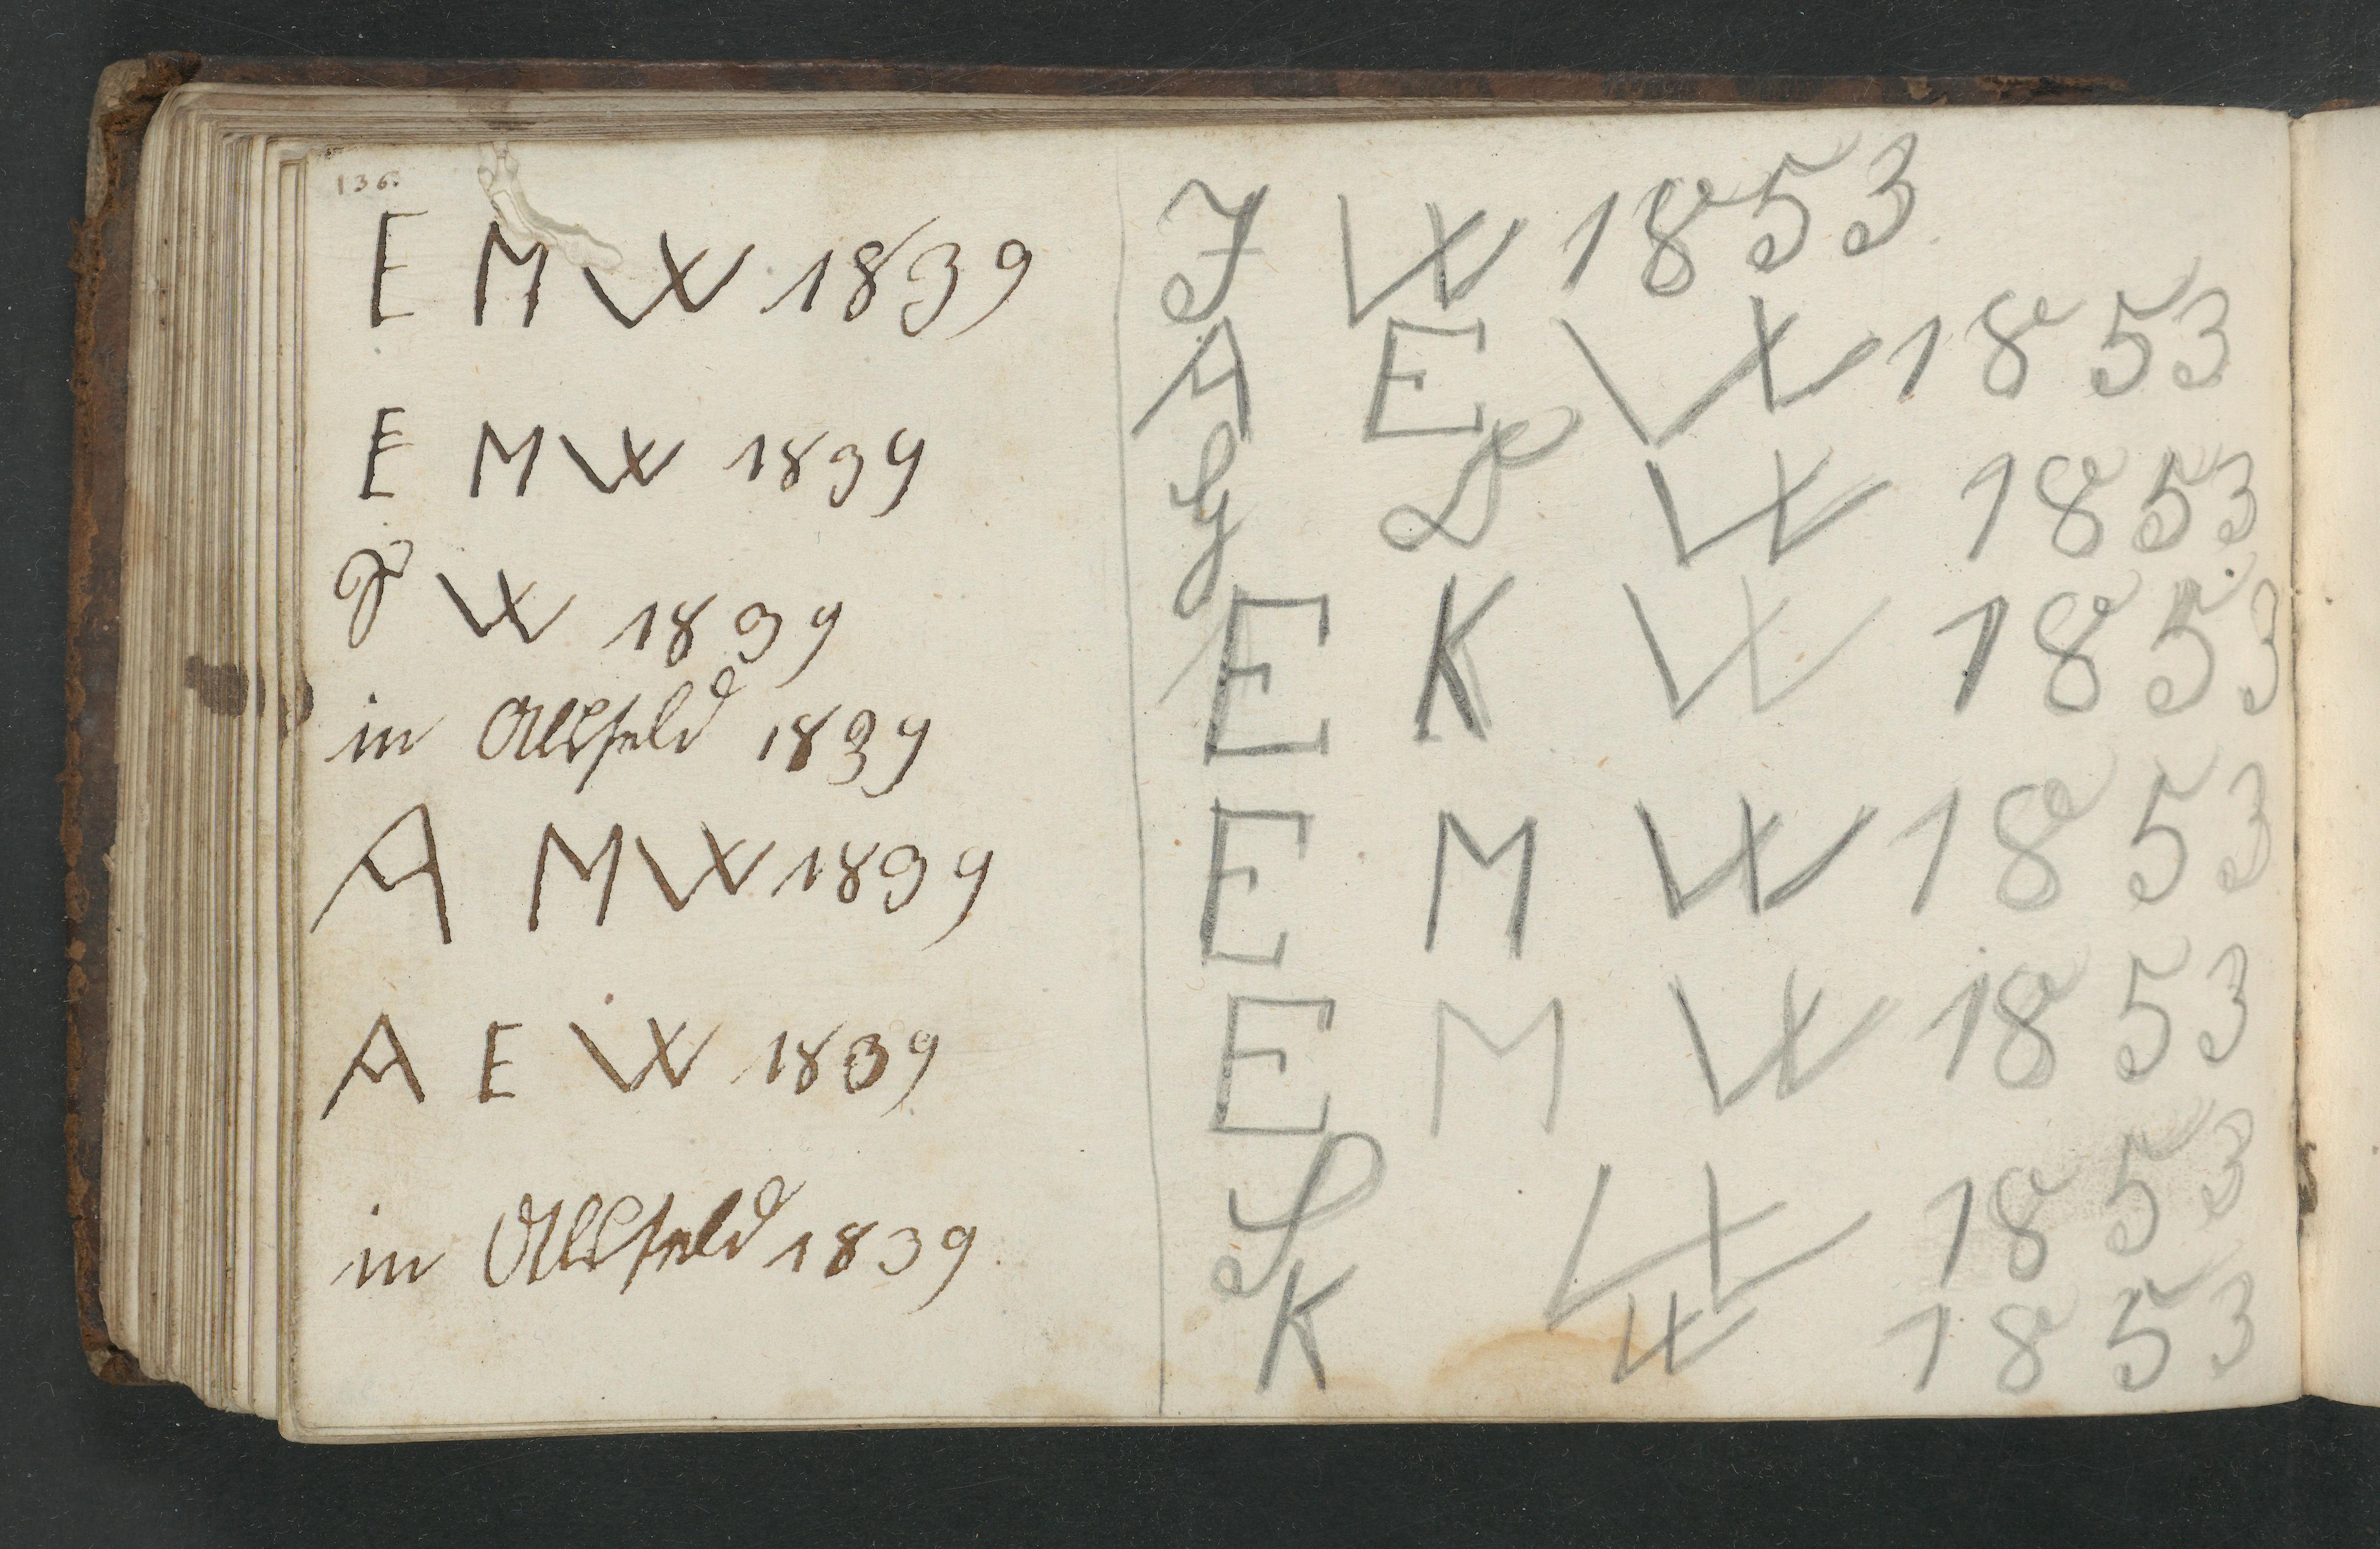 136.
E M W 1839
E M W 1839
J W 1839
in Altsfeld 1839
A M W 1839
A E W 1839
in Altsfeld 1839
J W 1853
A E W 1853
G D W 1853
E K W 1853
E M W 1853
E M W 1853
S W 1853
K W 1853